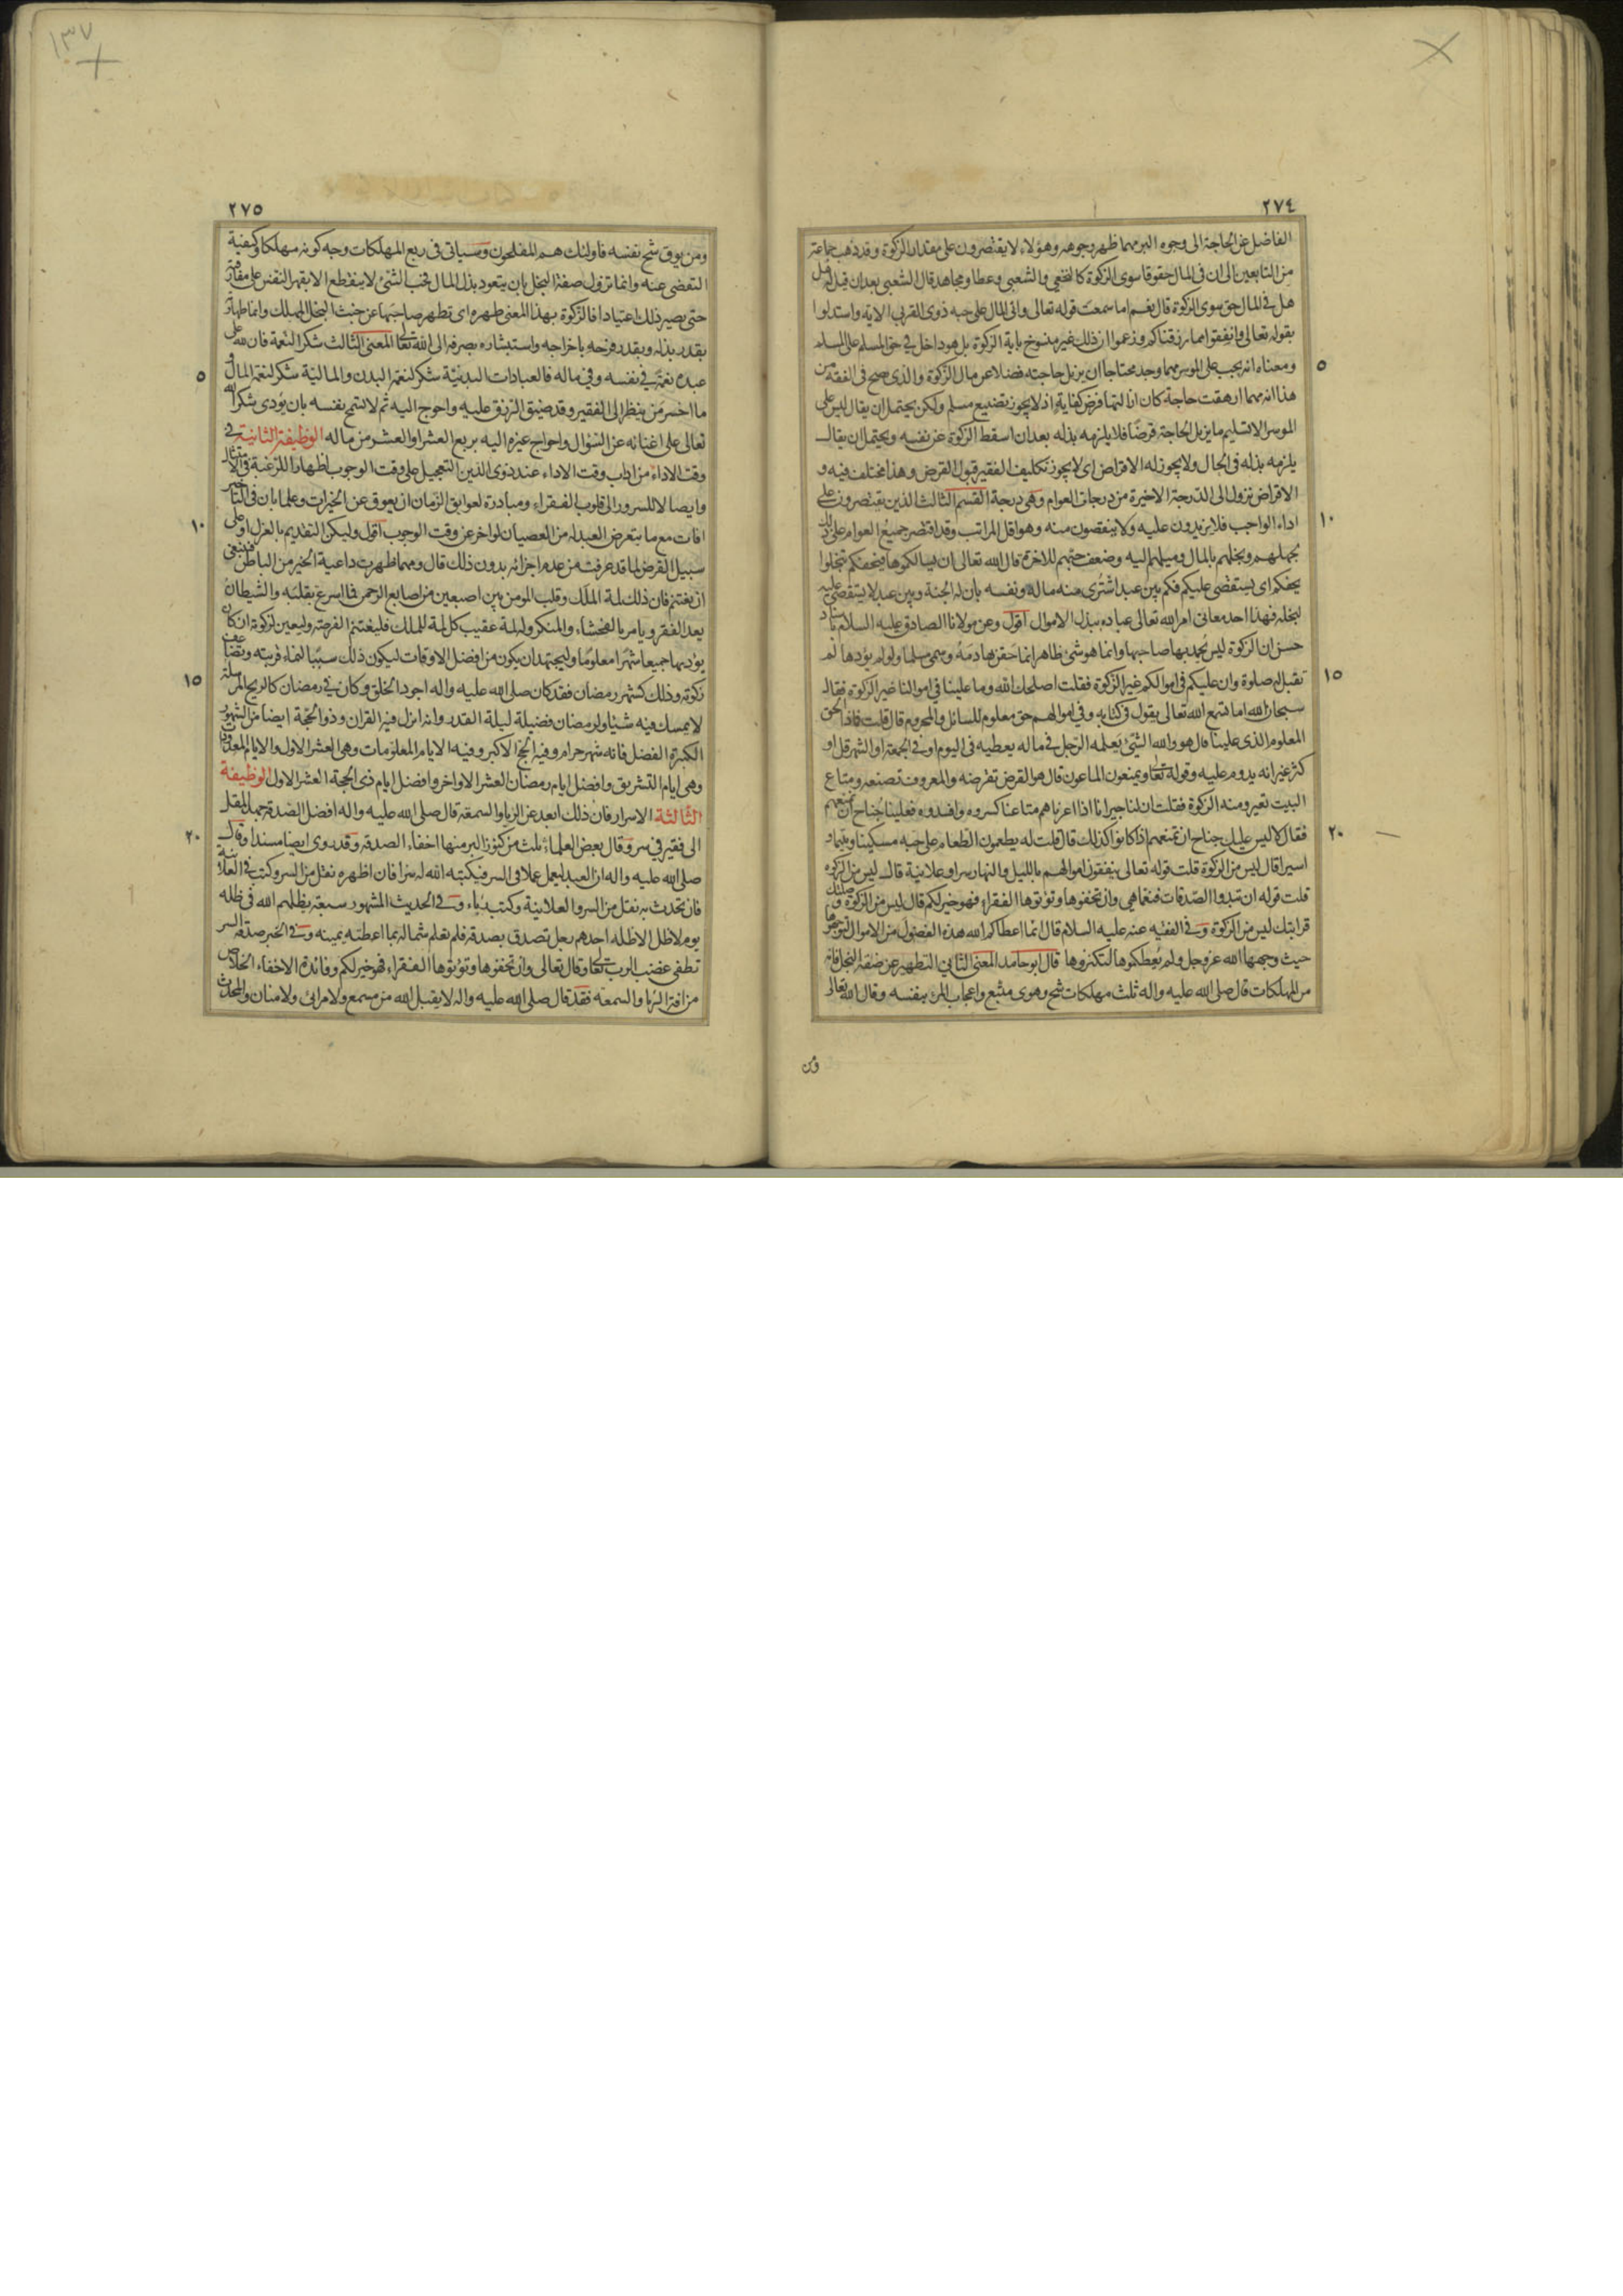 ٢٧٤
الفاضل عن الحاجة الى وجوه البر مهما ظهر وجوهه وهؤلاء لا يقتصرون على مقدار الزكوة وقد ذهب جماعة
من التابعين الى ان فى المال حقوقا سوى الزكوة كالنخعي والشعبي وعطا ومجاهد قال الشعبي بعد ان قيل له
هل في المال حق سوى الزكوة قال نعم اما سمعت قوله تعالى واتى المال على حبه ذوى القربى الاية واستدلوا
بقوله تعالى وانفقوا مما رزقناكم وزعموا ان ذلك غير منسوخ باية الزكوة بل هو داخل في حق المسلم على المسلم
٥
ومعناه انه يجب على الموسر مهما وجد محتاجا ان يزيل حاجته فضلا عن مال الزكوة والذى صح فى الفقه من
هذا انه مهما ارهقت حاجة كان ازالتها فرض كفاية اذ لا يجوز تضييع مسلم ولكن يحتمل ان يقال ليس على
الموسر الا تسليم ما يزيل الحاجة قرضا فلا يلزمه بذله بعد ان اسقط الزكوة عن نفسه ويحتمل ان يقال
يلزمه بذله فى الحال ولا يجوز له الاقراض اى لا يجوز تكليف الفقير قبول القرض وهذا مختلف فيه و
الاقراض نزول الى الدرجة الاخيرة من درجات العوام وهى درجة القسم الثالث الذين يقتصرون على
١٠
اداء الواجب فلا يزيدون عليه ولا ينقصون منه وهو اقل المراتب وقد اقتصر جميع العوام على ذلك
لجهلهم وبخلهم بالمال وميلهم اليه وضعف حبهم للاخرة قال الله تعالى ان يسالكموها فيحفكم تبخلوا
يحفكم اى يستقصى عليكم فكم بين عبد اشترى منه ماله ونفسه بان له الجنة وبين عبد لا يستقصى عليه
لبخله فهذا احد معانى امر الله تعالى عباده ببذل الاموال اقول وعن مولانا الصادق عليه السلام باسناد
حسن ان الزكوة ليس يحمد بها صاحبها وانما هو شئ ظاهر انما حقن بها دمه وسمى مسلما ولو لم يؤدها لم
١٥
تقبل له صلوة وان عليكم فى اموالكم غير الزكوة فقلت اصلحك الله وما علينا فى اموالنا غير الزكوة فقال
سبحان الله اما تسمع الله تعالى يقول فى كتابه وفى اموالهم حق معلوم للسائل والمحروم قال قلت فماذا الحق
المعلوم الذى علينا قال هو والله الشئ يعلمه الرجل فى ماله يعطيه فى اليوم او فى الجمعة او الشهر قل او
كثر غير انه يدوم عليه وقوله تعالى ويمنعون الماعون قال هو القرض تقرضه والمعروف تصنعه ومتاع
البيت تعيره ومنه الزكوة فقلت ان لنا جيرانا اذا اعرناهم متاعا كسروه وافسدوه فعلينا جناح ان نمنعهم
٢٠
فقال لا ليس عليك جناح ان تمنعهم اذا كانوا كذلك قال قلت له يطعمون الطعام على حبه مسكينا ويتيما و
اسيرا قال ليس من الزكوة قلت قوله تعالى ينفقون اموالهم بالليل والنهار سرا وعلانية قال ليس من الزكوة
قلت قوله ان تبدوا الصدقات فنعما هى وان تخفوها وتؤتوها الفقراء فهو خير لكم قال ليس من الزكوة وصلتك
قرابتك ليس من الزكوة وفى الفقيه عنه عليه السلام قال انما اعطاكم الله هذه الفضول من الاموال لتوجهوها
حيث وجهها الله عز وجل ولم يعطكموها لتكنزوها قال ابو حامد المعنى الثاني التطهير عن صفة البخل فانه
من المهلكات قال صلى الله عليه واله ثلث مهلكات شح وهوى متبع واعجاب المرء بنفسه وقال الله تعالى
ومن
٢٧٥
ومن يوق شح نفسه فاولئك هم المفلحون وسياتى فى ربع المهلكات وجه كونه مهلكا وكيفية
التفصى عنه وانما تزول صفة البخل بان يتعود بذل المال فحب الشئ لا ينقطع الا بقهر النفس على مفارقته
حتى يصير ذلك اعتيادا فالزكوة بهذا المعنى طهره اى تطهر صاحبها عن خبث البخل المهلك وانما طهارته
بقدر بذله وبقدر فرحه باخراجه واستبشاره بصرفه الى الله تعالى المعنى الثالث شكر النعمة فان لله على
٥
عبده نعمة فى نفسه وفى ماله فالعبادات البدنية شكر لنعمة البدن والمالية شكر لنعمة المال و
ما اخس من ينظر الى الفقير وقد ضيق الرزق عليه واحوج اليه ثم لا تسمح نفسه بان يؤدى شكر الله
تعالى على اغنائه عن السؤال واحواج غيره اليه بربع العشر او العشر من ماله الوظيفة الثانية فى
وقت الاداء من اداب وقت الاداء عند ذوى الدين التعجيل على وقت الوجوب اظهارا للرغبة فى الامتثال
وايصالا للسرور الى قلوب الفقراء ومبادرة لعوايق الزمان ان يعوق عن الخيرات وعلما بان فى التاخير
١٠
افات مع ما يتعرض العبد له من العصيان لو اخر عن وقت الوجوب اقول وليكن التقديم بالعزل او على
سبيل القرض لما قد عرفت من عدم اجزائه بدون ذلك قال ومهما ظهرت داعية الخير من الباطن فينبغى
ان يغتنم فان ذلك لمة الملك وقلب المومن بين اصبعين من اصابع الرحمن فما اسرع تقلبه والشيطان
يعد الفقر ويامر بالفحشاء والمنكر وله لمة عقيب كل لمة للملك فليغتنم الفرصة وليعين لزكوته ان كان
يؤديها جميعا شهرا معلوما وليجتهد ان يكون من افضل الاوقات ليكون ذلك سببا لنماء قربته وتضاعف
١٥
زكوته وذلك كشهر رمضان فقد كان صلى الله عليه واله اجود الخلق وكان فى رمضان كالريح المرسلة
لا يمسك فيه شيئا ولرمضان فضيلة ليلة القدر وانه انزل فيه القران وذو الحجة ايضا من الشهور
الكثيرة الفضل فانه شهر حرام وفيه الحج الاكبر وفيه الايام المعلومات وهى العشر الاول والايام المعدودات
وهى ايام التشريق وافضل ايام رمضان العشر الاواخر وافضل ايام ذى الحجة العشر الاول الوظيفة
الثالثة الاسرار فان ذلك ابعد عن الريا والسمعة قال صلى الله عليه واله افضل الصدقة جهد المقل
٢٠
الى فقير فى سر وقال بعض العلماء ثلث من كنوز البر منها اخفاء الصدقة وقد روى ايضا مسندا وقال
صلى الله عليه واله ان العبد ليعمل عملا فى السر فيكتبه الله له سرا فان اظهره نقل من السر وكتب فى العلانية
فان تحدث به نقل من السر والعلانية وكتب رياء وفى الحديث المشهور سبعة يظلهم الله فى ظله
يوم لا ظل الا ظله احدهم رجل تصدق بصدقة فلم تعلم شماله بما اعطته يمينه وفى الخبر صدقة السر
تطفى غضب الرب تعالى وقال تعالى وان تخفوها وتؤتوها الفقراء فهو خير لكم وفائدة الاخفاء الخلاص
من افة الريا والسمعة فقد قال صلى الله عليه واله لا يقبل الله من مسمع ولا مرائى ولا منان والمحدث
١٣٧